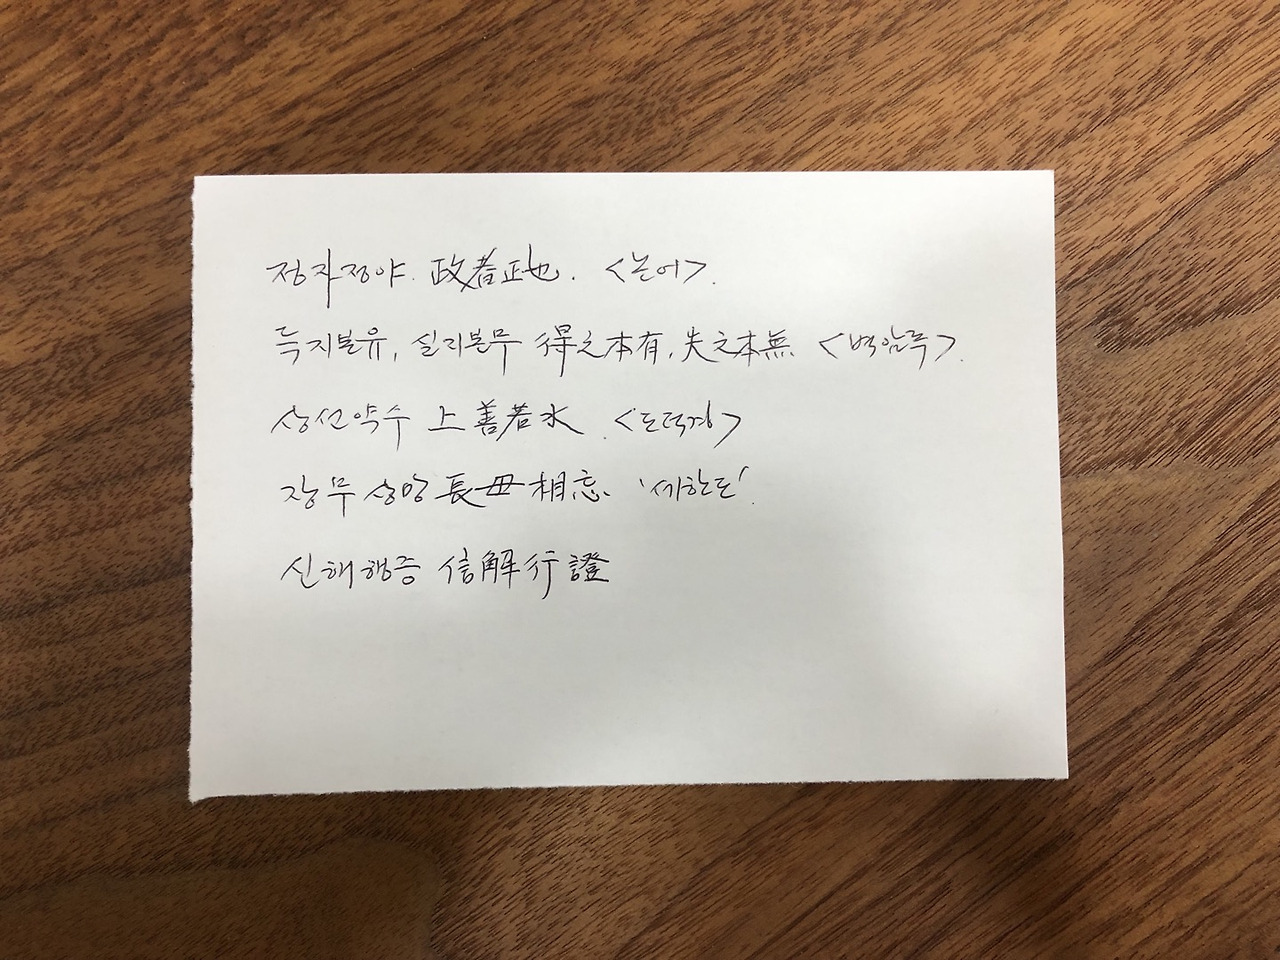 정자정야. 政者正也. <논어>.
득지본유, 실지본무 得之本有, 失之本無 <벽암록>.
상선약수 上善若水. <도덕경>
장무상망 長毋相忘. '세한도'.
신해행증 信解行證